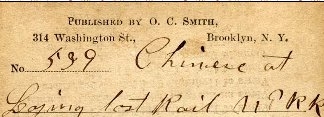 PUBLISHED BY O. C. SMITH,
314 Washington St., Brooklyn, N. Y.
No 539 Chinese at
Laying last Rail U P R R